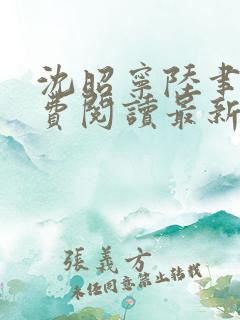 沈昭寧陸書
費閱讀最新
張義方
未经同意禁止转载